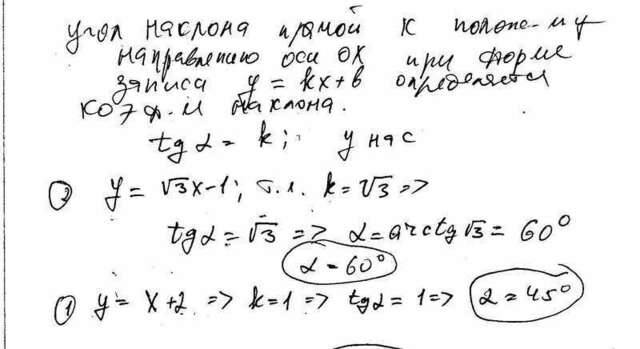 угол наклона прямой к положе-му
направлению оси ОХ при форме
записи y = kx+b определяется
коэф.-м наклона.
tg α = k; у нас
② y = √3x-1; т.е. k = √3 =>
tg α = √3 => α = arctg √3 = 60°
α = 60°
① y = x+2 => k = 1 => tg α = 1 => α = 45°